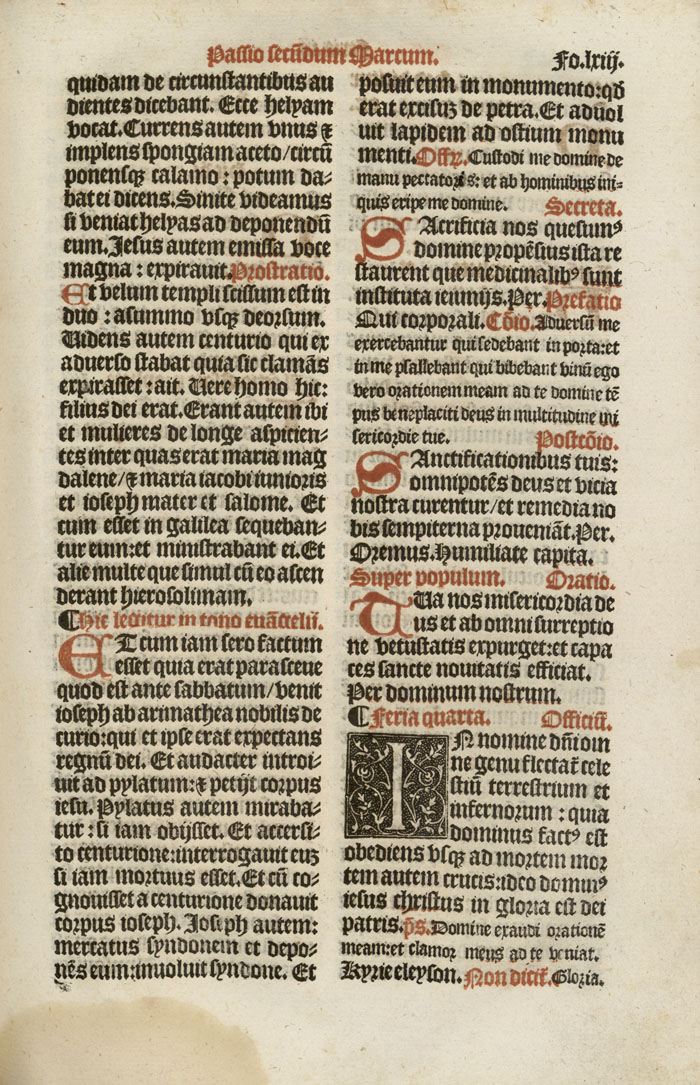 Passio secūdum Marcum. Fo.lxiij.
quidam de circunstantibus au
dientes dicebant. Ecce helyam
vocat. Currens autem vnus ⁊
implens spongiam aceto/circū
ponensqꝫ calamo : potum da-
bat ei dicens. Sinite videamus
si veniat helyas ad deponendū
eum. Jesus autem emissa voce
magna : expirauit. Prostratio.
Et velum templi scissum est in
duo : a summo vsqꝫ deorsum.
Uidens autem centurio qui ex
aduerso stabat quia sic clamās
expirasset : ait. Uere homo hic:
filius dei erat. Erant autem ibi
et mulieres de longe aspicien-
tes inter quas erat maria mag
dalene/⁊ maria iacobi iunioris
et ioseph mater et salome. Et
cum esset in galilea sequeban-
tur eum:et ministrabant ei. Et
alie multe que simul cū eo ascen
derant hierosolimam.
¶ Hic legitur in tono euāgelii.
ET cum iam sero factum
esset quia erat parasceue
quod est ante sabbatum/venit
ioseph ab arimathea nobilis de
curio:qui et ipse erat expectans
regnū dei. Et audacter introi-
uit ad pylatum:⁊ petijt corpus
iesu. Pylatus autem miraba-
tur : si iam obijsset. Et accersi-
to centurione:interrogauit euꝫ
si iam mortuus esset. Et cū co-
gnouisset a centurione donauit
corpus ioseph. Joseph autem:
mercatus syndonem et depo-
nēs eum:inuoluit syndone. Et
posuit eum in monumento:qđ
erat excisuꝫ de petra. Et aduol
uit lapidem ad ostium monu
menti. Offꝝ. Custodi me domine de
manu peccatoris: et ab hominibus ini-
quis eripe me domine. Secreta.
SAcrificia nos quesumꝰ
domine propēsius ista re
staurent que medicinalibꝰ sunt
instituta ieiunijs. Per. Prefatio
Qui corporali. Cōio. Aduersū me
exercebantur qui sedebant in porta:et
in me psallebant qui bibebant vinū ego
vero orationem meam ad te domine tē
pus beneplaciti deus in multitudine mi
sericordie tue. Postcōio.
SAnctificationibus tuis:
omnipotēs deus et vicia
nostra curentur/et remedia no
bis sempiterna proueniāt. Per.
Oremus. Humiliate capita.
Super populum. Oratio.
TUa nos misericordia de
us et ab omni surreptio
ne vetustatis expurget:et capa
ces sancte nouitatis efficiat.
Per dominum nostrum.
¶ Feria quarta. Officiū.
IN nomine dn̄i om
ne genu flectat᷑ cele
stiū terrestrium et
infernorum : quia
dominus factꝰ est
obediens vsqꝫ ad mortem mor
tem autem crucis:ideo dominꝰ
iesus christus in gloria est dei
patris. p̄s. Domine exaudi orationē
meam:et clamor meus ad te veniat.
Kyrieeleyson. Non dicit᷑. Gloria.